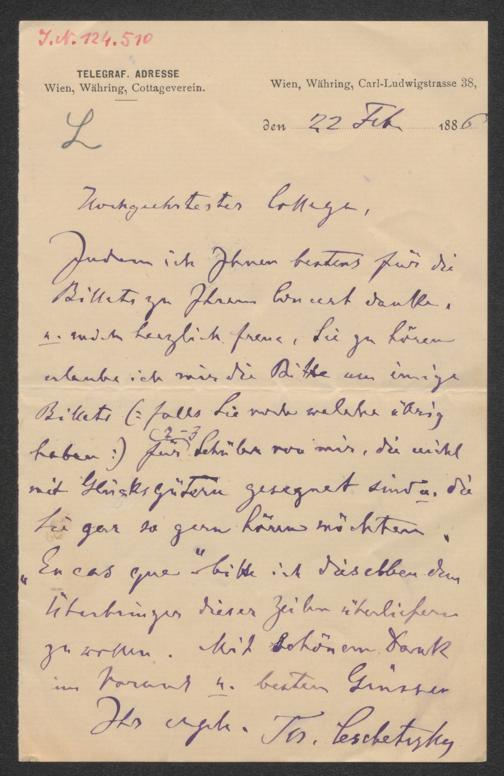 I.N. 124.510
TELEGRAF. ADRESSE
Wien, Währing, Cottageverein.
Wien, Währing, Carl-Ludwigstrasse 38,
den 22 Feb 1886
L
Hochgeehrtester College,
Indem ich Ihnen bestens für die
Billets zu Ihrem Concert danke,
u. mich herzlich freue, Sie zu hören
erlaube ich mir die Bitte um einige
Billets (: falls Sie noch welche übrig
haben :) für (2-3) Schüler von mir, die nicht
mit Glücksgütern gesegnet sind u. die
Sie gar so gern hören möchten.
„En cas que" bitte ich dieselben dem
Überbringer dieser Zeilen überliefern
zu wollen. Mit schönem Dank
im Voraus u. besten Grüssen
Ihr ergeb. Th. Leschetizky